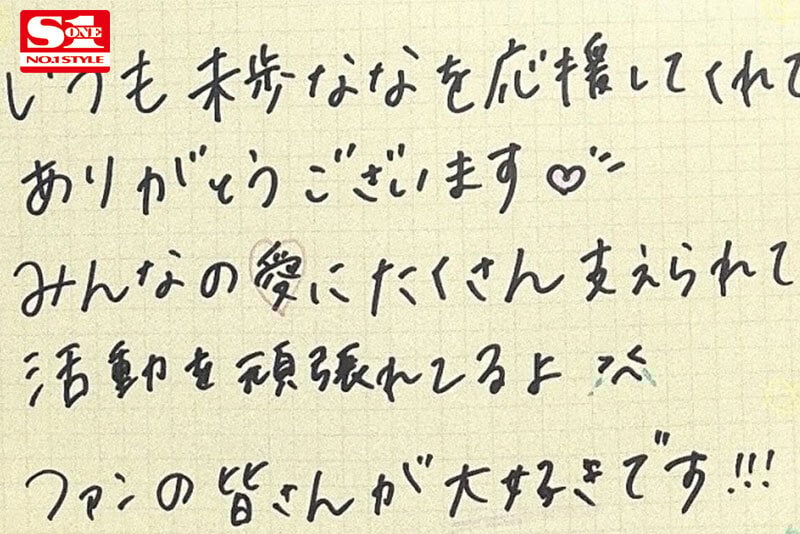 S1
ONE
NO.1 STYLE
いつも未歩ななを応援してくれて
ありがとうございます♡
みんなの愛にたくさん支えられて
活動を頑張れてるよ
ファンの皆さんが大好きです!!!